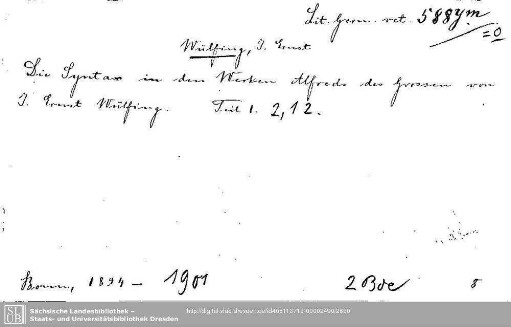 Lit. Germ. vet. 588ym
=0
Wülfing, J. Ernst.
Die Syntax in den Werken Alfreds des Grossen von
J. Ernst Wülfing. Teil 1. 2,1 2.
Bonn, 1894 - 1901 2 Bde 8
Sächsische Landesbibliothek –
Staats- und Universitätsbibliothek Dresden